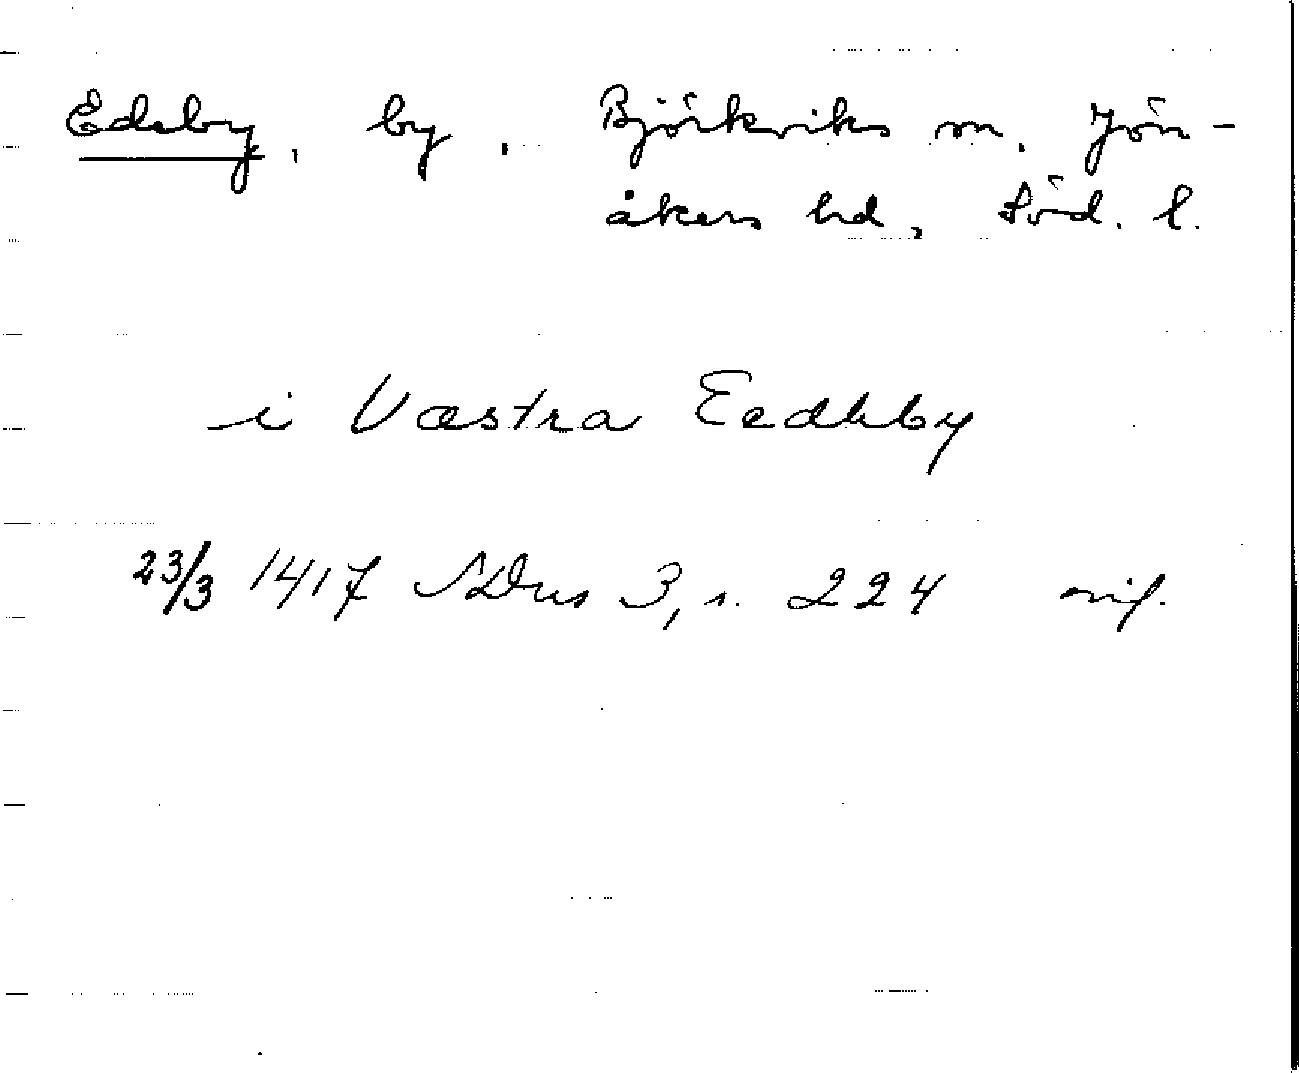 Edeby, by, Björkviks sn, Jön-
åkers hd, Söd. l.
i Væstra Eedhby
23/3 1417 SDns 3, s. 224 orig.